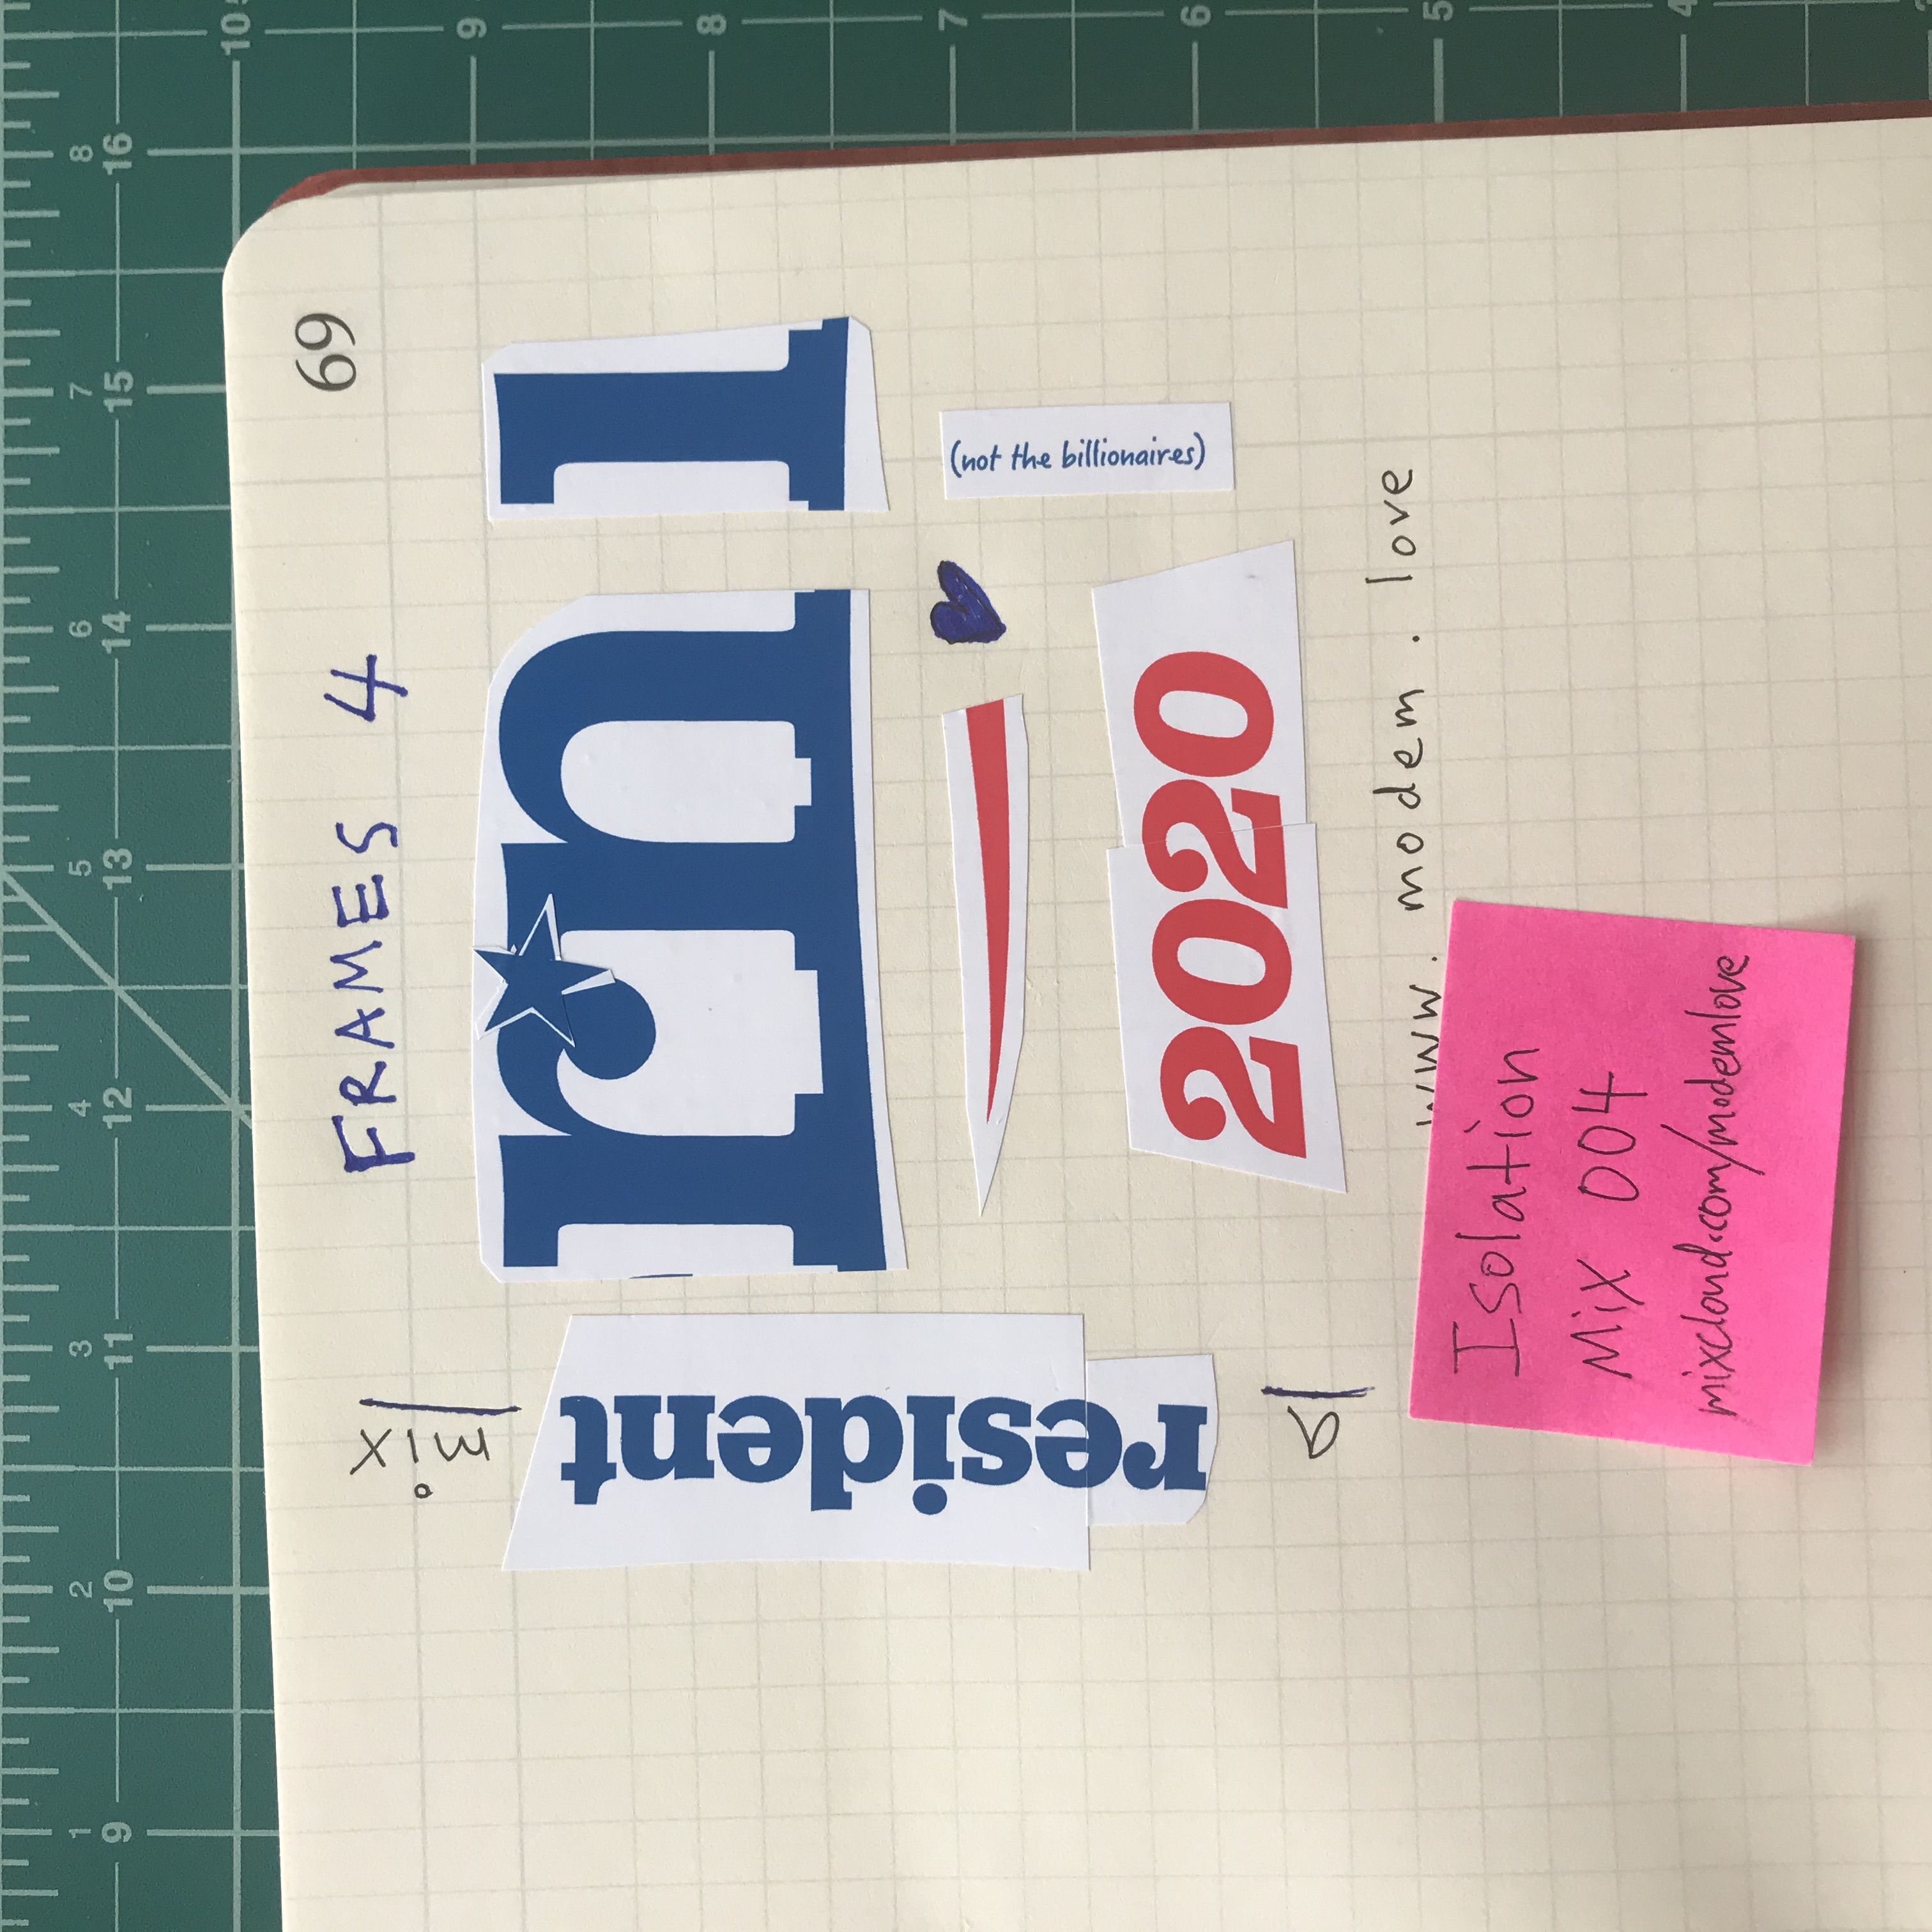 1 2 3 4 5 6 7 8
9 10 11 12 13 14 15 16
10
9
8
7
6
5
4
69
FRAMES 4
a resident mix
rn ı
2020
(not the billionaires)
www. modem . love
Isolation
Mix 004
mixcloud.com/modemlove